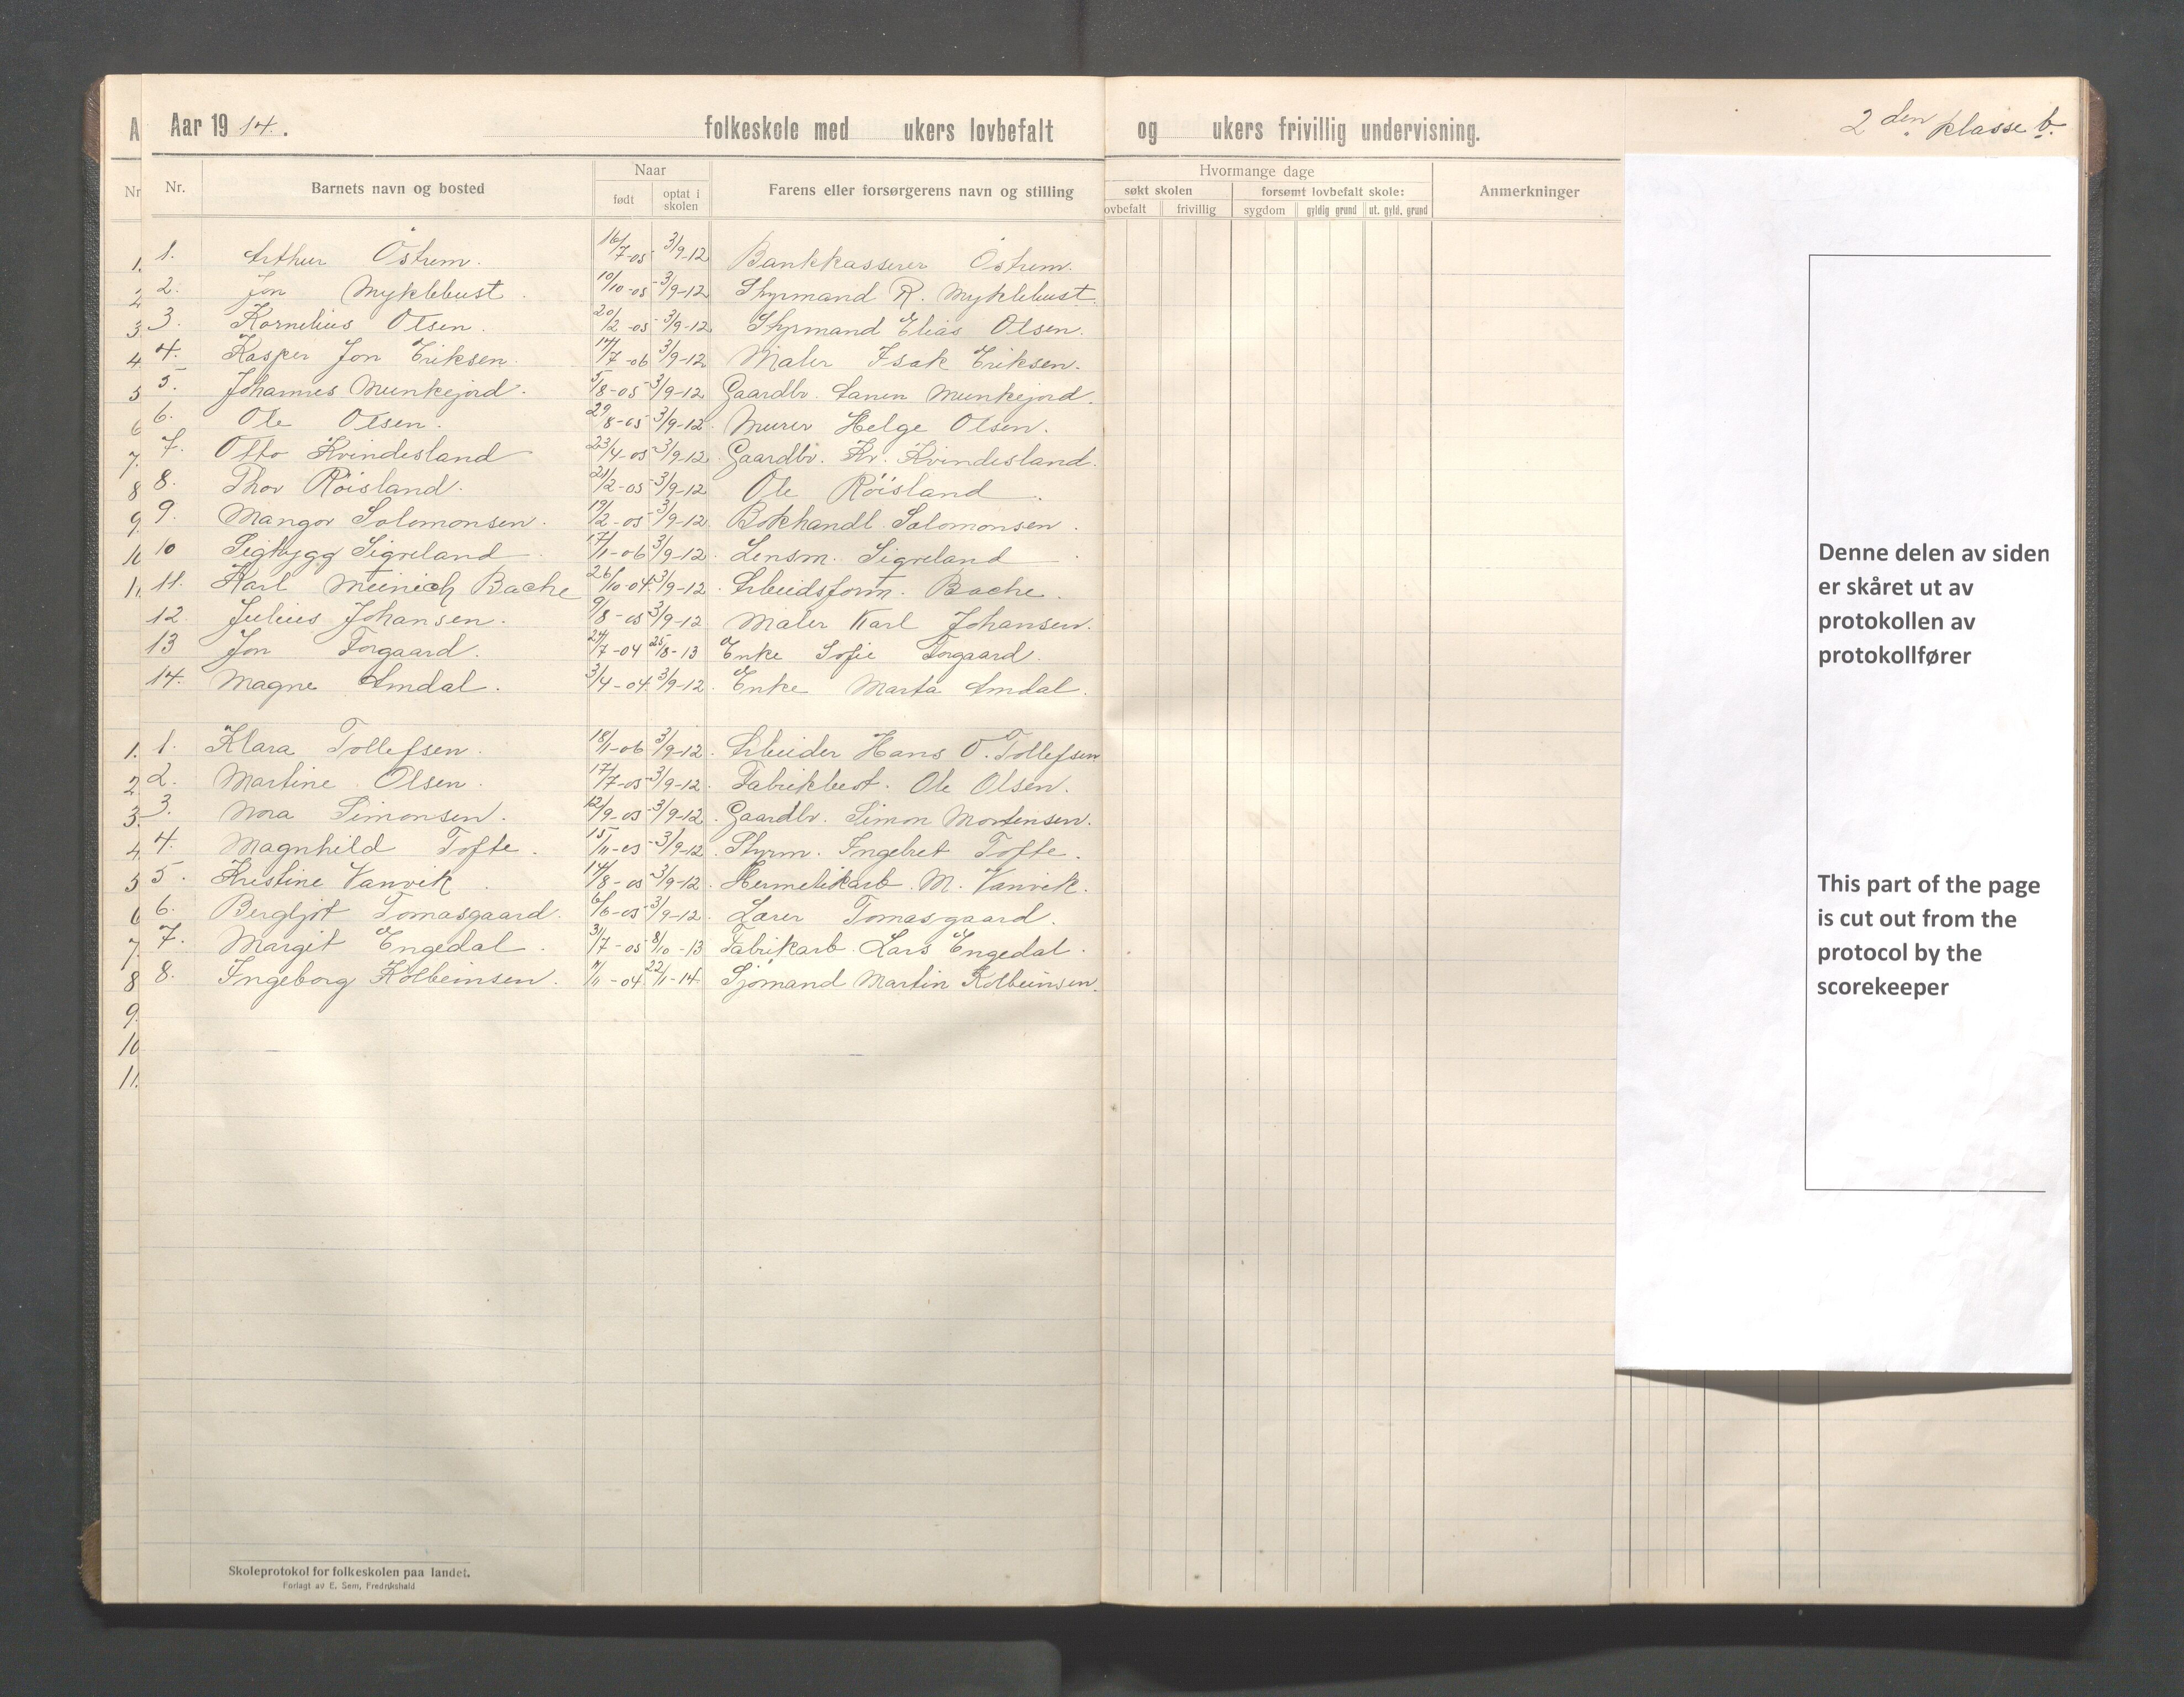 Aar 1914. folkeskole med ukers lovbefalt og ukers frivillig undervisning.
2den klasse b.
Nr. Barnets navn og bosted Naar født optat i skolen Farens eller forsørgerens navn og stilling
Hvormange dage
søkt skolen forsømt lovbefalt skole: Anmerkninger
ovbefalt frivillig sygdom gyldig grund ut. gyld. grund
1. Arthur Östrem. 16/7-05 3/9-12 Bankkasserer Östrem.
2. Jon Myklebust. 10/10-05 3/9-12 Styrmand R. Myklebust.
3. Kornelius Olsen. 20/2-05 3/9-12 Styrmand Elias Olsen.
4. Kasper Jon Eriksen. 14/7-06 3/9-12 Maler Isak Eriksen.
5. Johannes Munkejord. 5/8-05 3/9-12 Gaardbr. Aanen Munkejord.
6. Ole Olsen. 29/8-05 3/9-12. Murer Helge Olsen.
7. Otto Kvindesland 23/4-05 3/9-12. Gaardbr. Kr. Kvindesland.
8. Thor Röisland. 21/2-05 3/9-12 Ole Röisland.
9. Mangor Solomonsen. 19/2-05 3/9-12 Bokhandl. Salomonsen.
10 Sigtrygg Sigreland. 17/1-06 3/9-12. Lensm. Sigreland.
11. Karl Meinich Bache 26/10-04. 3/9-12. Arbeidsform. Bache.
12. Julius Johansen. 9/8-05 3/9-12 Maler Karl Johansen.
13 Jon Torgaard. 24/7-04 25/8-13 Enke Sofie Torgaard.
14. Magne Amdal. 3/4-04. 3/9-12. Enke Marta Amdal.
1. Klara Tollefsen. 18/1-06 3/9-12. Arbeider Hans O. Tollefsen
2. Martine Olsen. 17/7-05 3/9-12. Fabrikbest. Ole Olsen.
3. Nora Simonsen. 12/9-05 3/9-12. Gaardbr. Simon Mortensen.
4. Magnhild Tofte. 15/11-05 3/9-12. Styrm. Ingebret Tofte.
5. Kristine Vanvik. 14/8-05 3/9-12. Hermetikarb. M. Vanvik.
6. Bergljot Tomasgaard. 6/6-05 3/9-12. Lærer Tomasgaard.
7. Margit Engedal. 31/7-05 8/10-13 Fabrikarb. Lars Engedal.
8. Ingeborg Kolbeinsen. 4/11-04 22/1-14 Sjömand Martin Kolbeinsen.
Skoleprotokol for folkeskolen paa landet.
Forlagt av E. Sem, Fredrikshald
A
Nr
1.
2
3
4
5
6
7.
8
9.
10
1.
1.
2
3.
4.
5
6
7.
8
9.
10
11.
Denne delen av siden
er skåret ut av
protokollen av
protokollfører
This part of the page
is cut out from the
protocol by the
scorekeeper